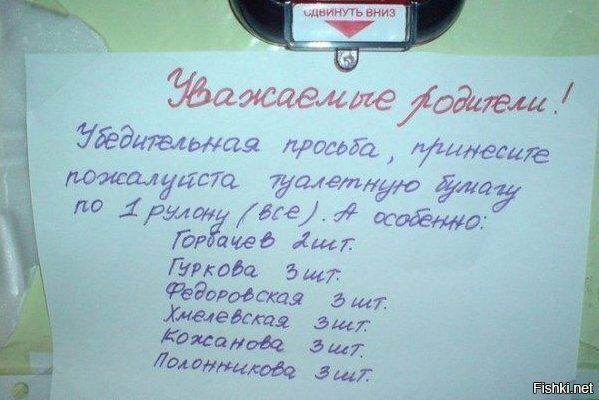 СДВИНУТЬ ВНИЗ
Уважаемые родители!
Убедительная просьба, принесите
пожалуйста туалетную бумагу
по 1 рулону (все). А особенно:
Горбачев 2 шт.
Гуркова 3 шт.
Федоровская 3 шт.
Хмелевская 3 шт.
Кожанова 3 шт.
Полонникова 3 шт.
Fishki.net